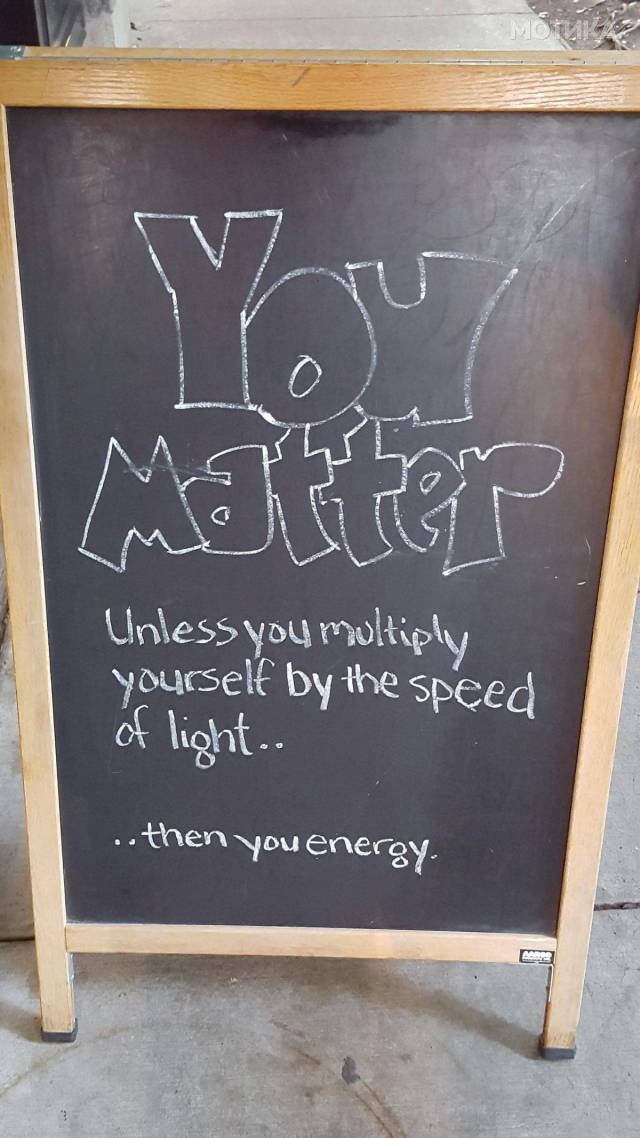 МОТИКА
You
Matter
Unless you multiply
yourself by the speed
of light..
..then you energy.